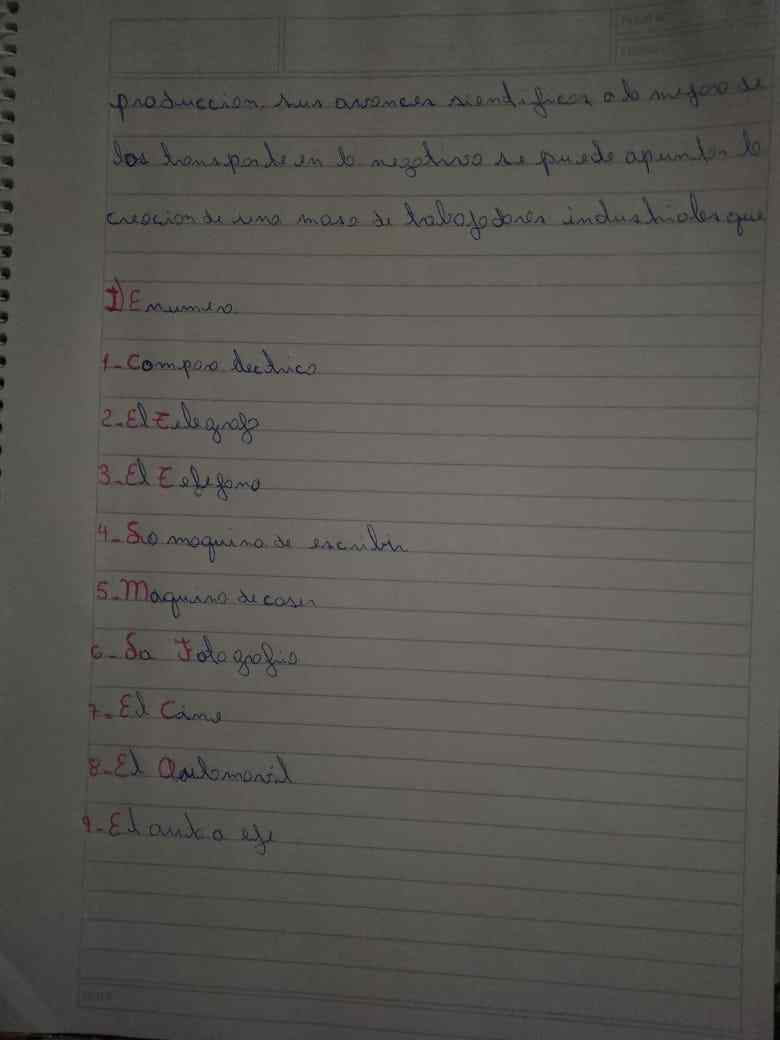 produccion, sus avances siendificos a la mejora de
los transporte en lo negativo se puede apuntar la
creacion de una masa de trabajadores industriales que
I) Enumero
1- Campara electrica
2- El Telegrafo
3- El Telefono
4- La maquina de escribir
5- Maquina de coser
6- La Fotografia
7- El Cine
8- El Automovil
9- El